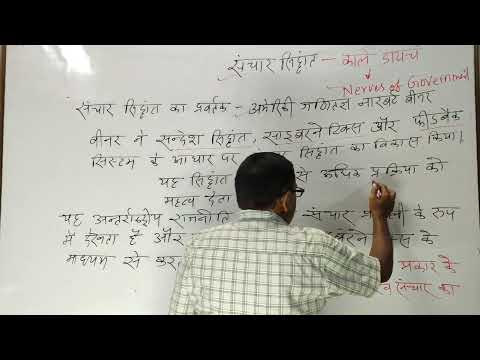 संचार सिद्धांत — कार्ल डायच
Nerves of Government
संचार सिद्धांत का प्रवर्तक - अमेरिकी गणितज्ञ नारबर्ट वीनर
वीनर ने सन्देश सिद्धांत, साइबरनेटिक्स और फीडबैक
सिस्टम के आधार पर सिद्धांत का विकास किया।
यह सिद्धांत से अधिक प्रक्रिया को
महत्व देता
यह अन्तर्राष्ट्रीय राजनीति संचार प्रणाली के रूप
में देखता है और के
माध्यम से
प्रकार के
व संचार का